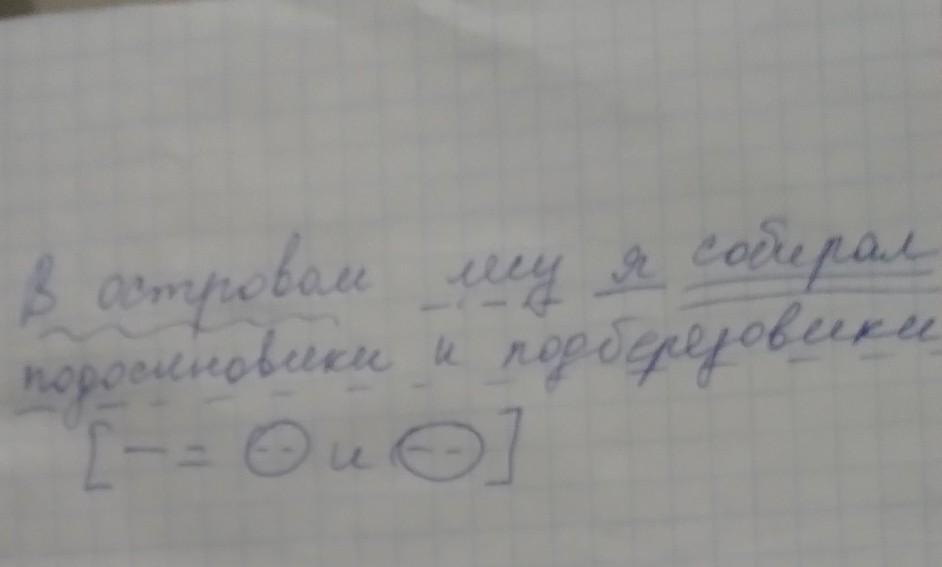 В островом лесу я собирал
подосиновики и подберезовики
[— = (--) и (--)]